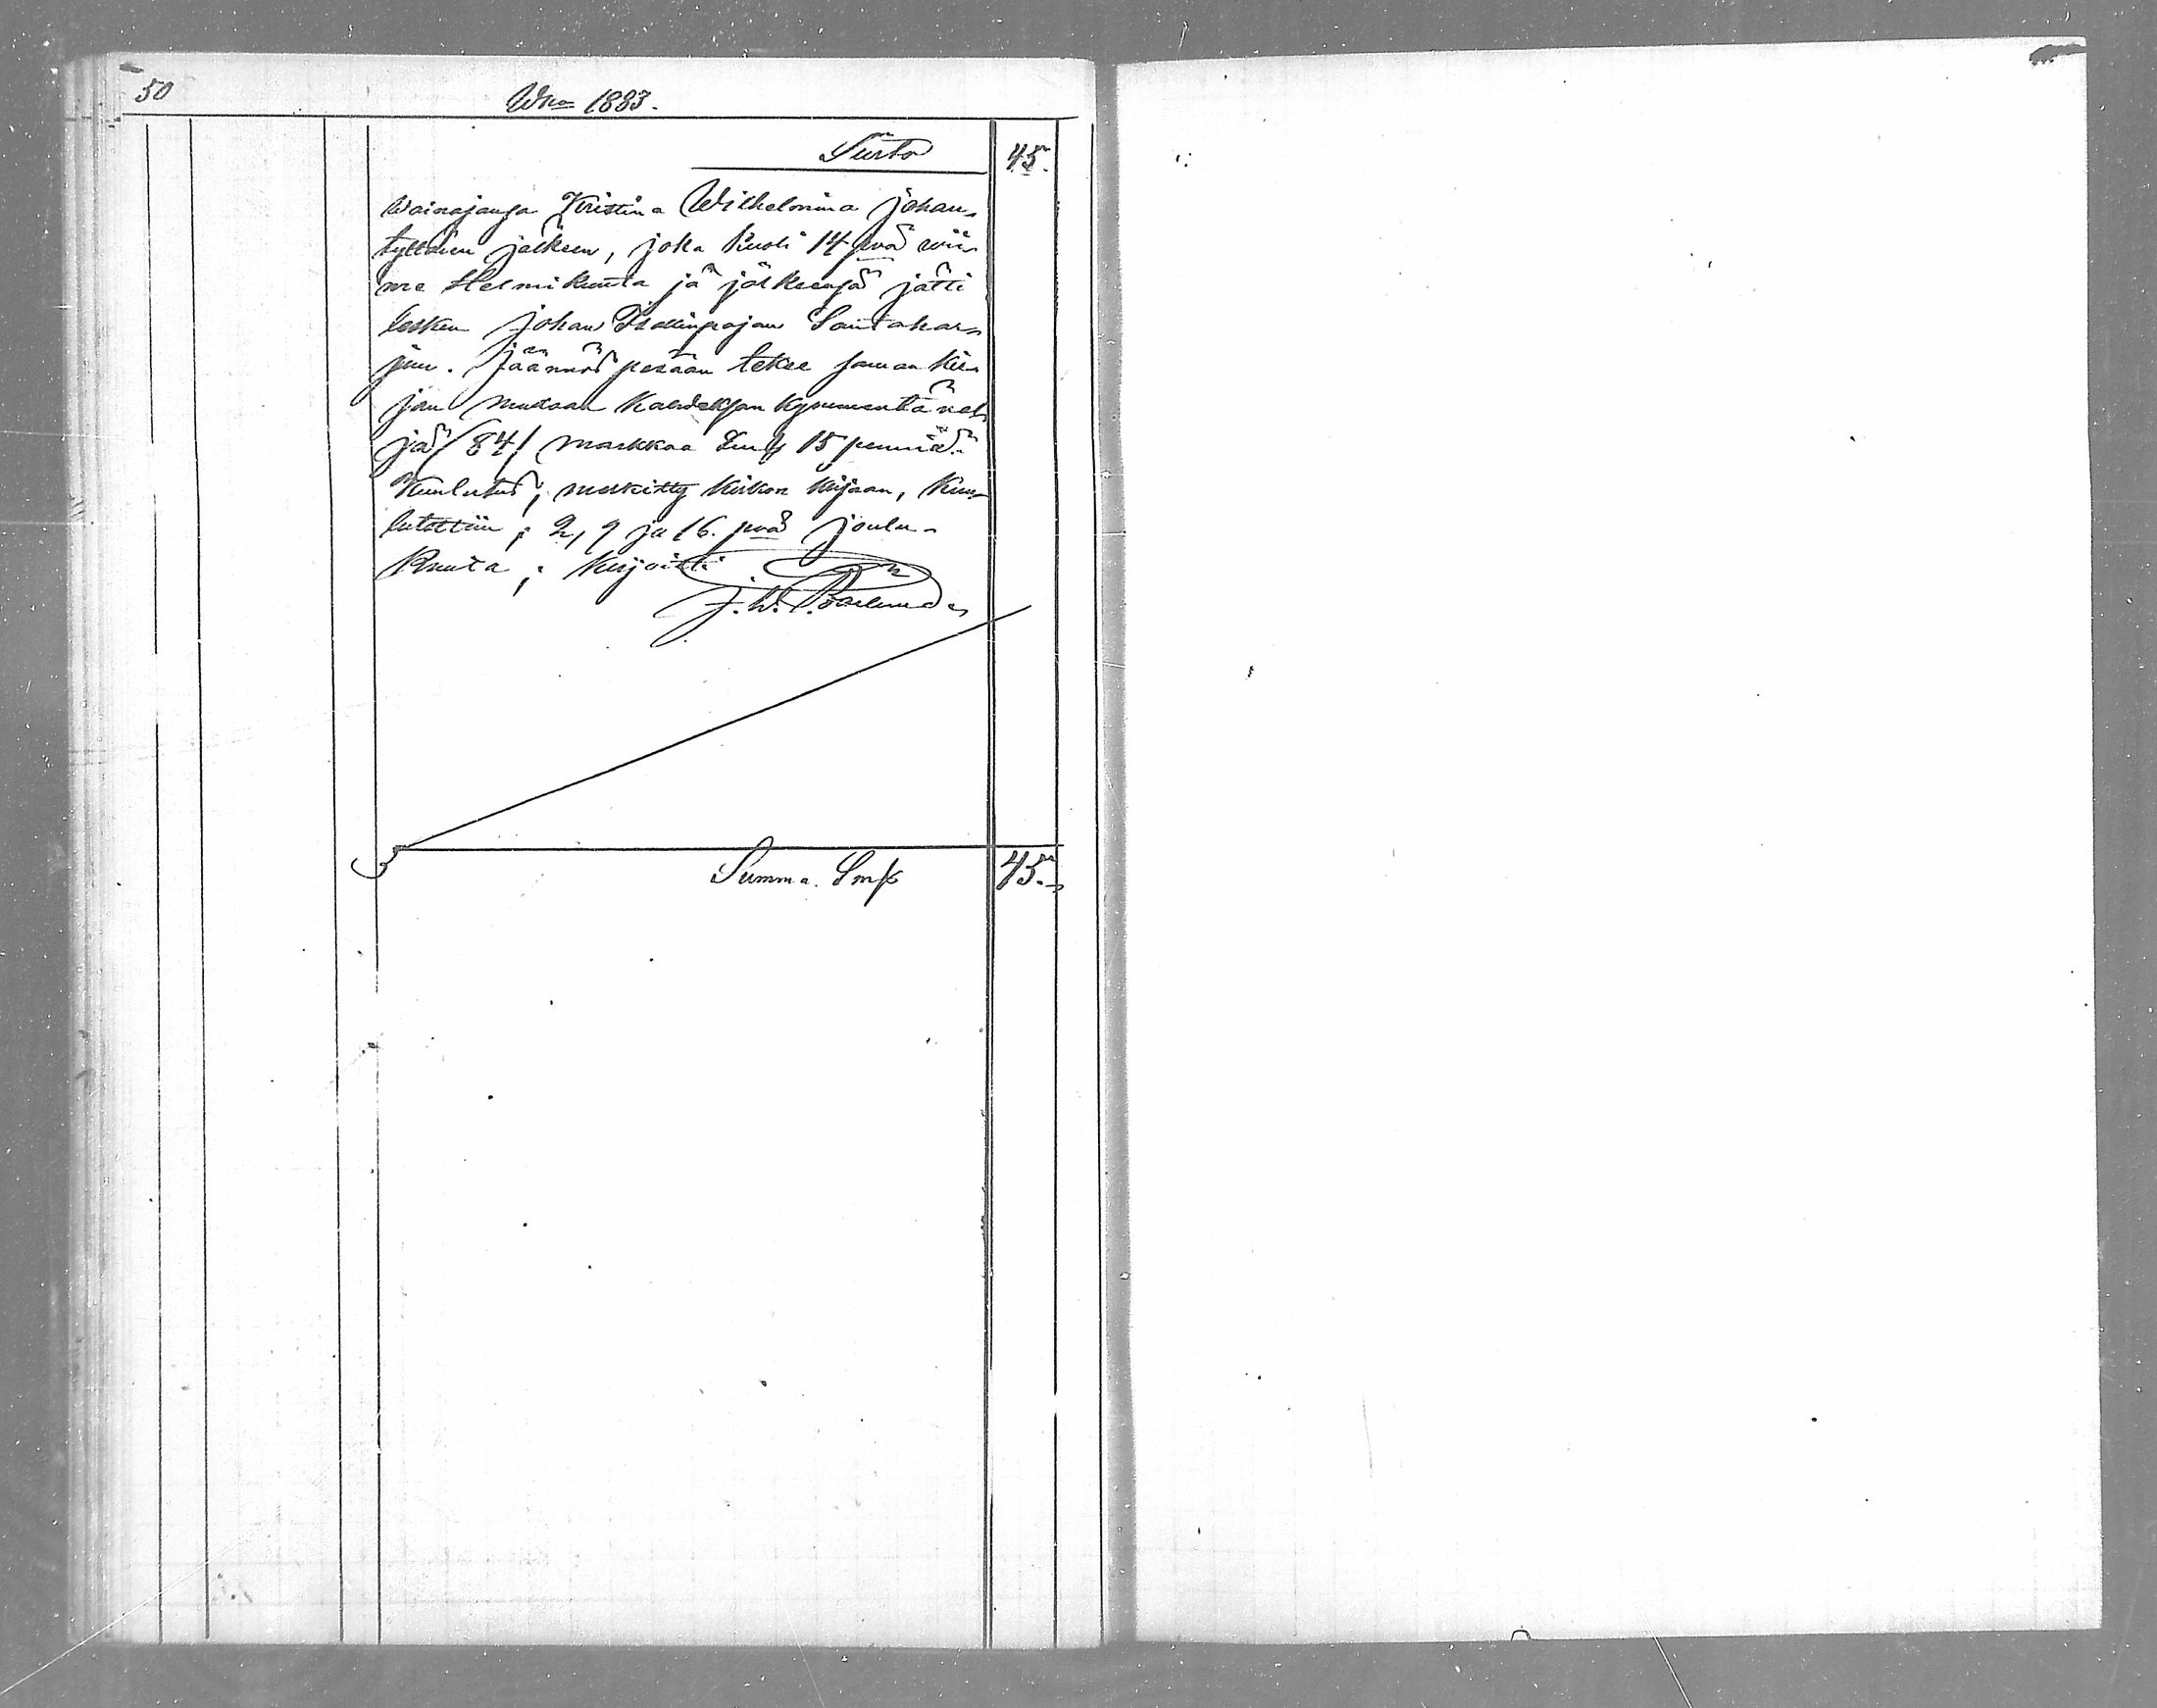 50
Wna 1883.
Siirto 45.
Wainajansa Kristina Wilhelmina Johan-
tyttären jälkeen, joka kuoli 14 pvä wii-
me Helmikuuta ja jälkeensä jätti
lesken Johan Iisakinpojan Santahar-
jun. Jäännös pesään tekee saman kir-
jan mukaan kahdeksan kymmentä nel-
jä /84/ markkaa 15 penniä.
Kuulutus; merkitty kirkon kirjaan, kuu-
lutettiin; 2, 9 ja 16. pvä joulu-
kuuta; kirjoitti
J. W.
Summa. Smk 45.